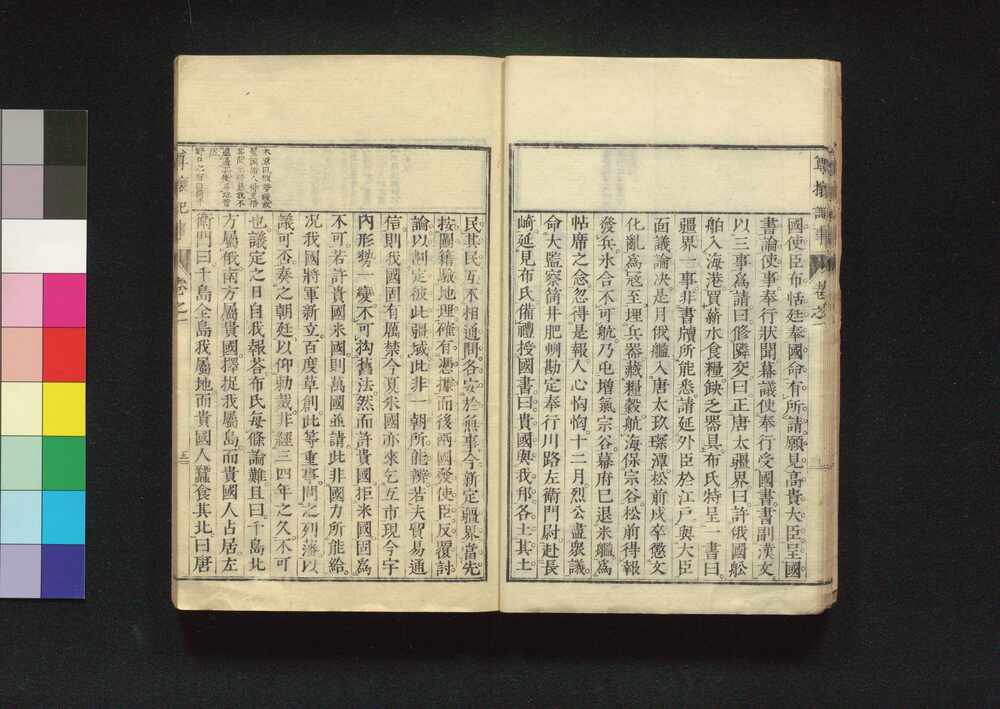 尊攘記事 卷之一
國使臣布恬廷奉國命有所請願見高貴大臣呈國
書諭使事奉行狀聞幕議使奉行受國書書副漢文
以三事爲請曰修隣交曰正唐太疆界曰許俄國舩
舶入海港買薪水食糧缺乏器具布氏特呈一書曰
疆界一事非書牘所能悉請延外臣於江戶與大臣
面議論決是月俄艦入唐太玖琛潭松前戍卒懲文
化亂爲寇至埋兵器藏糧穀航海保宗谷松前得報
發兵氷合不可航乃屯增氣宗谷幕府已退米艦爲
帖席之念忽得是報人心恟恟十二月烈公盡衆議
命大監察筒井肥州勘定奉行川路左衛門尉赴長
崎延見布氏備禮授國書曰貴國與我邦各主其土
民其民互不相通問各安於無事今新定疆界當先
按圖籍驗地理確有憑據而後兩國發使臣反覆討
論以劃定彼此疆域此非一朝所能辨若夫貿易通
信則我國固有厲禁今夏米國亦來乞互市現今宇
內形勢一變不可拘舊法然而許貴國拒米國固爲
不可若許貴國米國則萬國並請此非國力所能給
況我國將軍新立百度草創此等重事問之列藩以
議可否奏之朝廷以仰勅裁非經三四年之久不可
也議定之日自我報荅布氏每條論難且曰千島北
方屬俄南方屬貴國擇捉我屬島而貴國人占居左
衛門曰千島全島我屬地而貴國人蠶食其北曰唐